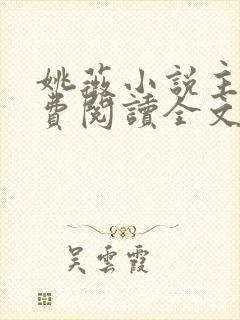 姚薇小說主
費閱讀全文
吳雲霞